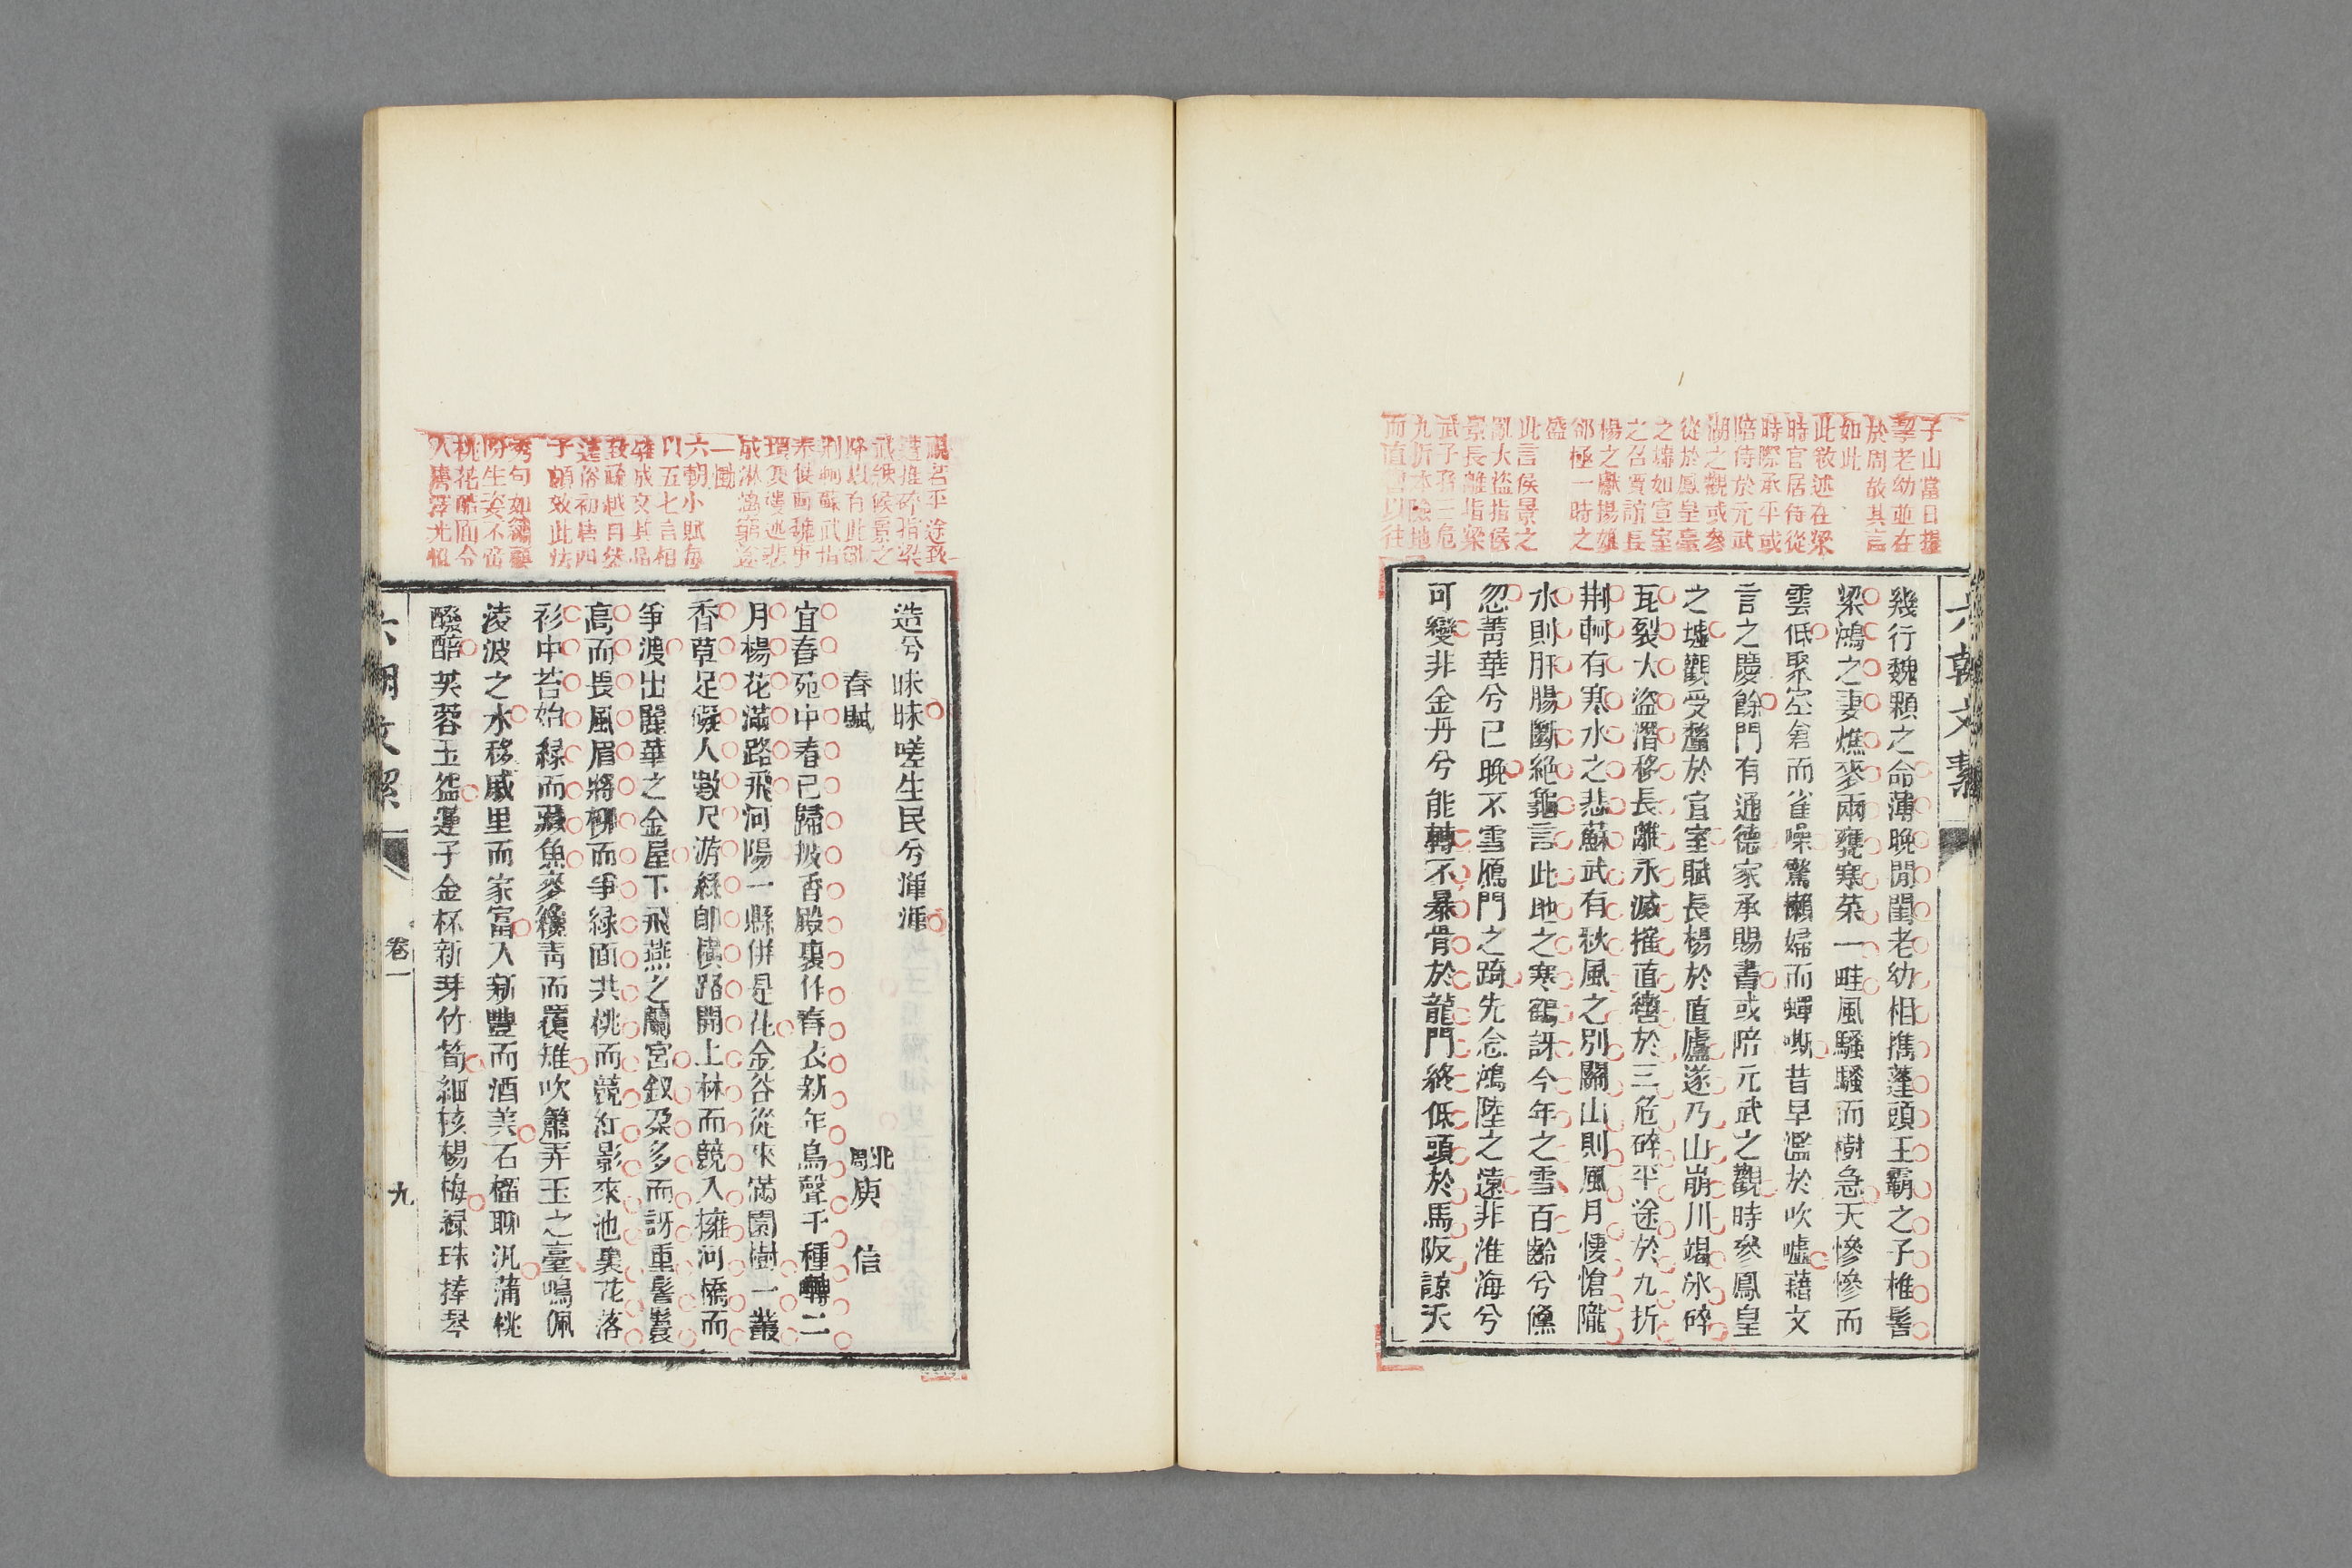 子山當日攜
孥老幼並在
於周故其言
如此
此敘述在梁
時官居侍從
時際承平或
陪侍於元武
湖之觀或參
從於鳳皇臺
之墟如宣室
之召賈誼長
楊之獻揚雄
郤極一時之
盛
此言侯景之
亂大盜指侯
景長離指梁
武子孫三危
九折本險地
而直轡以往
六朝文絜
幾行魏顆之命薄晚閒閨老幼相攜蓬頭王霸之子椎髻
梁鴻之妻燋麥兩甕寒菜一畦風騷騷而樹急天慘慘而
雲低聚空倉而雀噪驚懶婦而蟬嘶昔早濫於吹噓藉文
言之慶餘門有通德家承賜書或陪元武之觀時參鳳皇
之墟觀受釐於宣室賦長楊於直廬遂乃山崩川竭冰碎
瓦裂大盜潛移長離永滅摧直轡於三危碎平途於九折
荆軻有寒水之悲蘇武有秋風之別關山則風月悽愴隴
水則肝腸斷絕龜言此地之寒鶴訝今年之雪百齡兮儵
忽菁華兮已晚不雪雁門之踦先念鴻陸之遠非淮海兮
可變非金丹兮能轉不暴骨於龍門終低頭於馬阪諒天
視若平途致
遭摧碎指梁
武納侯景之
降以有此亂
荆軻蘇武指
奉使西魏事
瑣頁淒述悲
成淋漓鬱遂
一慟
六朝小賦每
以五七言相
雜成文其品
致疏越自然
遠俗初唐四
子頗效此法
秀句如繡顧
盼生姿不倫
桃花醋面令
人膚澤光悅
造兮昧昧嗟生民兮渾渾
春賦
北周庾信
宜春苑中春已歸披香殿裏作春衣新年鳥聲千種囀二
月楊花滿路飛河陽一縣併是花金谷從來滿園樹一叢
香草足礙人數尺游絲卽橫路開上林而競入擁河橋而
爭渡出麗華之金屋下飛燕之蘭宮釵朶多而訝重髻鬟
高而畏風眉將柳而爭綠面共桃而競紅影來池裏花落
衫中苔始綠而藏魚麥纔靑而覆雉吹簫弄玉之臺鳴佩
淩波之水移戚里而家富入新豐而酒美石榴聊汎蒲桃
醱醅芙蓉玉盌蓮子金杯新芽竹筍細核楊梅綠珠捧琴
六朝文絜
卷一
九